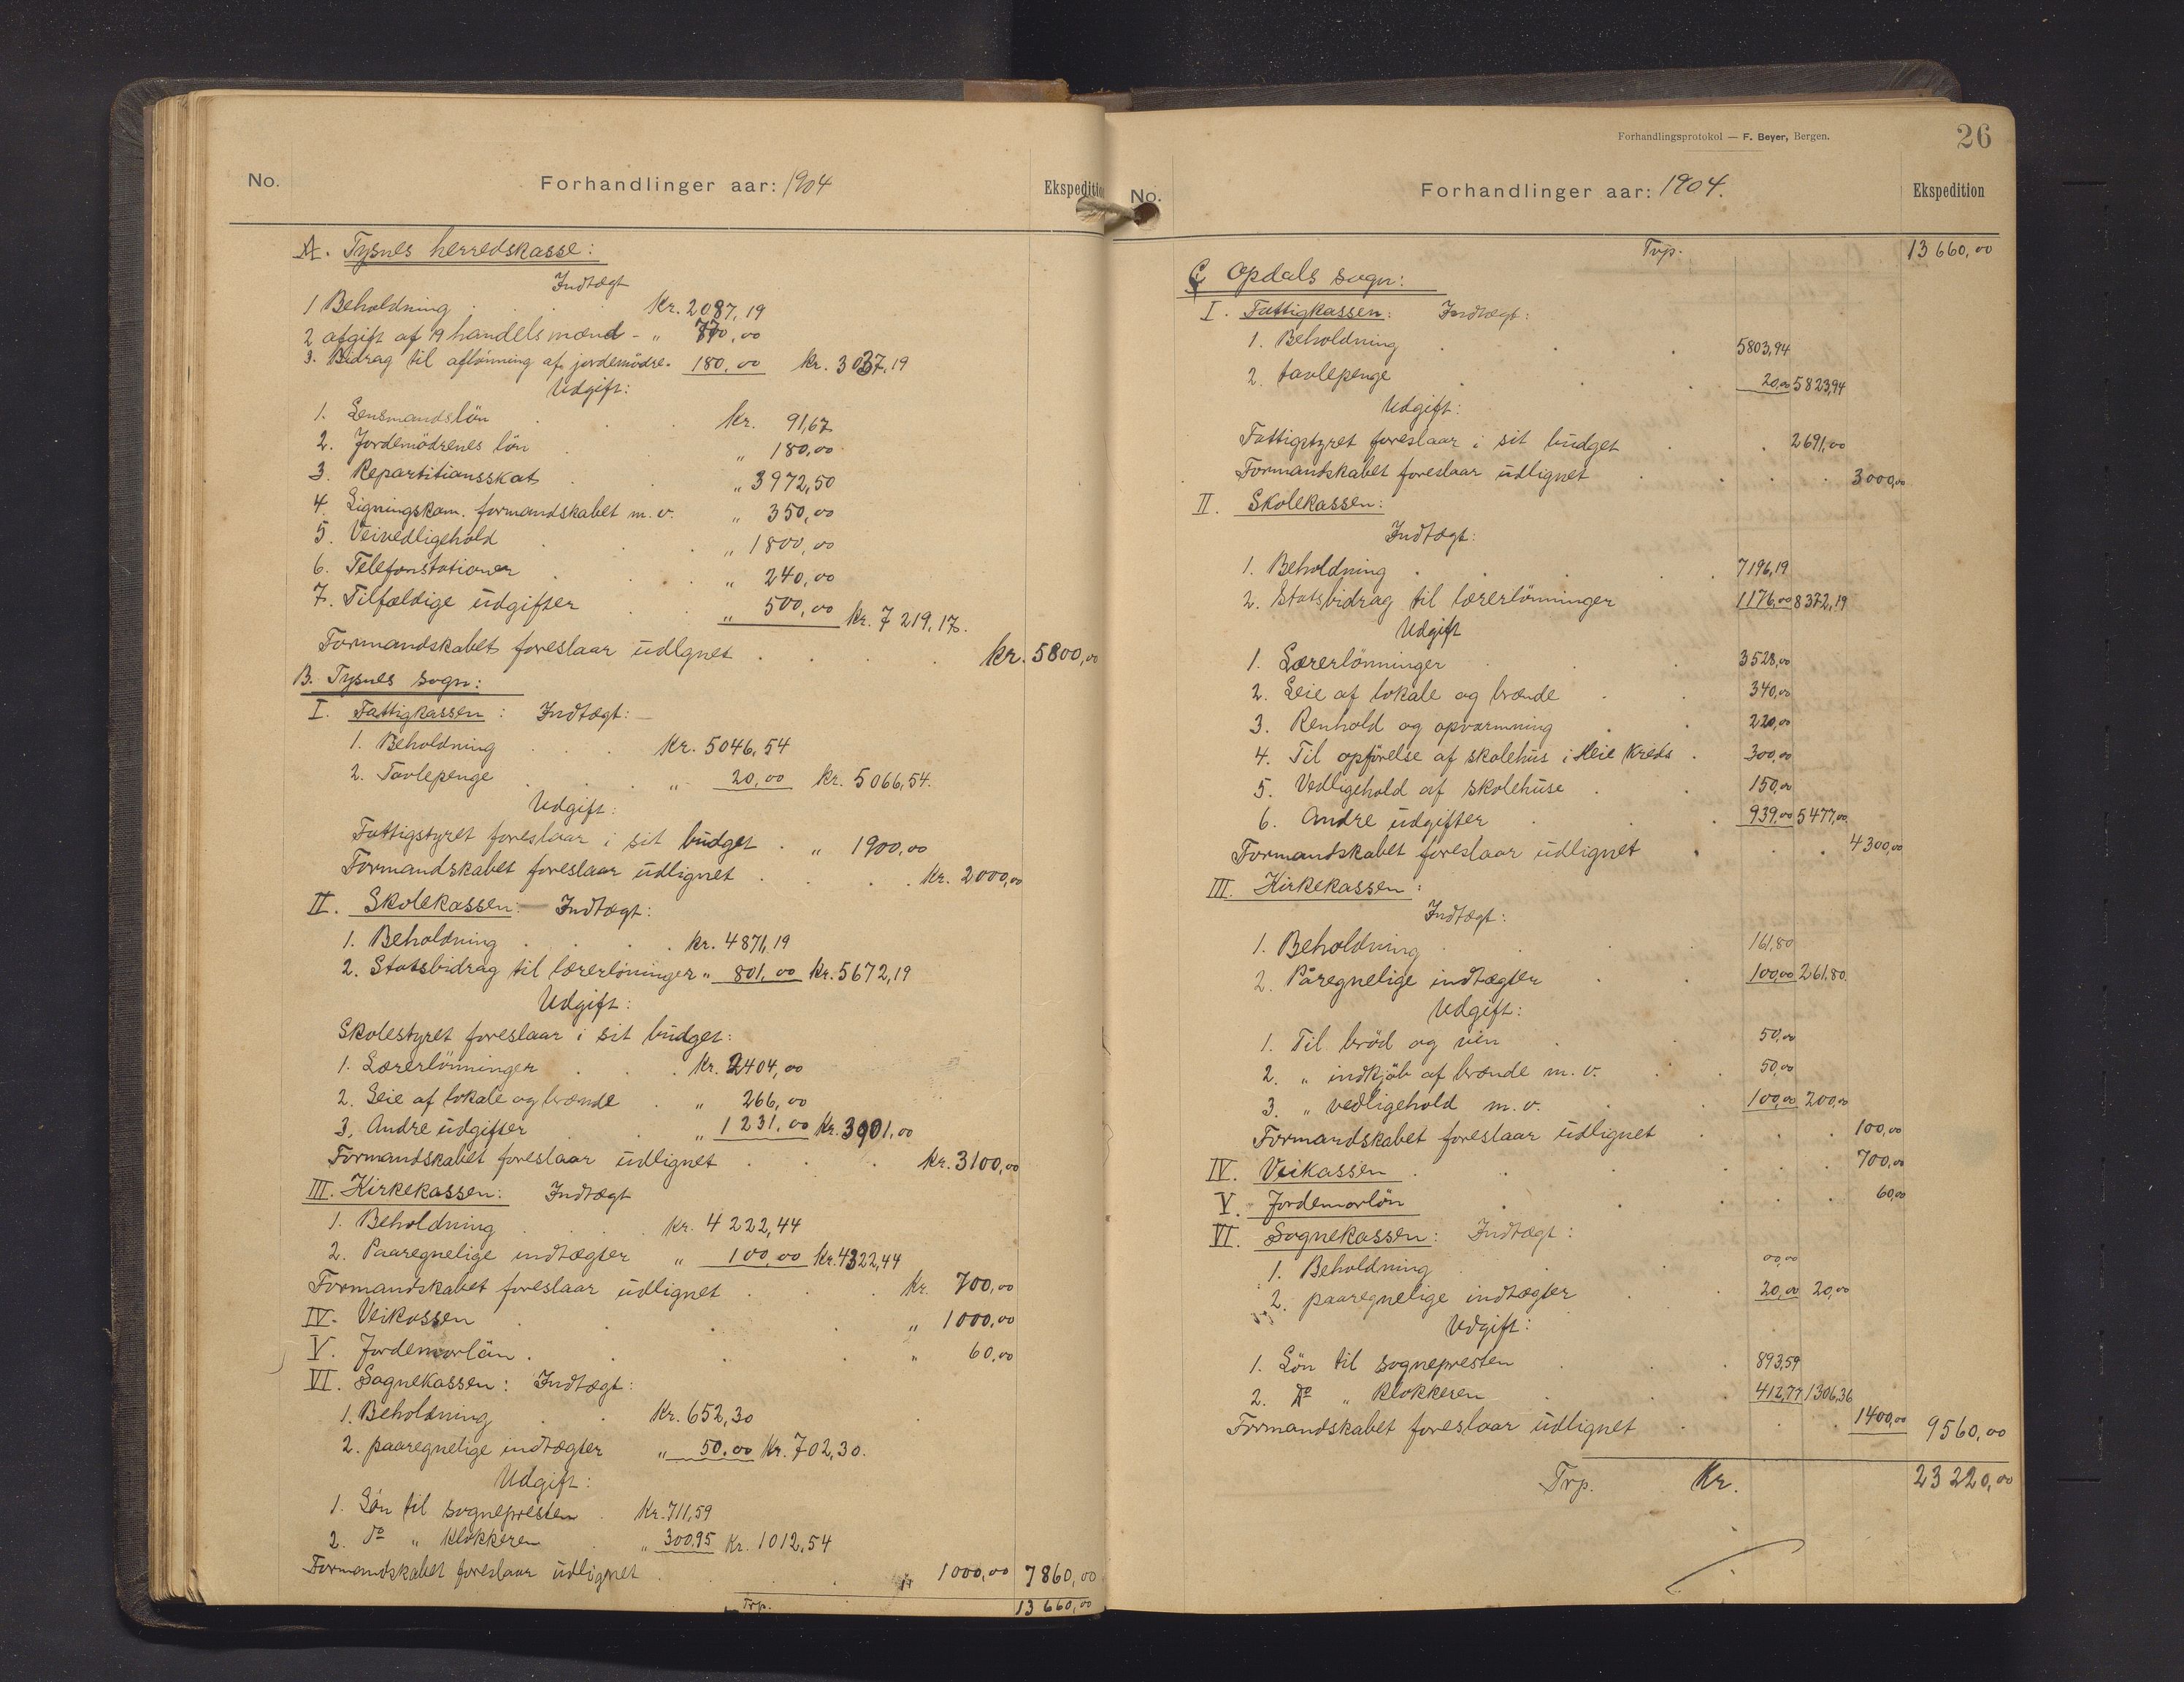 No. Forhandlinger aar: 1904 Ekspedition
A. Tysnes herredskasse:
Indtægt
1 Beholdning . . Kr. 2087,19
2 afgift af 19 handelsmænd - " 770,00
3. Bidrag til aflönning af jordemödre. 180,00 Kr. 3037,19
Udgift:
1. Lensmandslön . . . Kr. 91,67
2. Jordemödrenes lön . . " 180,00
3. Repartitionsskat . . " 3972,50
4. Ligningskom. formandskabet m.v. " 350,00
5. Veivedligehold . . . " 1800,00
6. Telefonstationer . . . " 240,00
7. Tilfældige udgifter . . " 500,00 Kr. 7219,17.
Formandskabet foreslaar udlgnet . . . . Kr. 5800,00
B. Tysnes sogn:
I. Fattigkassen: Indtægt:
1. Beholdning . . . Kr. 5046,54
2. Tavlepenge . . . " 20,00 Kr. 5066,54.
Udgift:
Fattigstyret foreslaar i sit budget . " 1900,00
Formandskabet foreslaar udlignet . . . Kr. 2000,00
II. Skolekassen: Indtægt:
1. Beholdning . . . . Kr. 4871,19
2. Statsbidrag til lærerlöninger " 801,00 Kr. 5672,19
Udgift:
Skolestyret foreslaar i sit budget:
1. Lærerlönninger . . . Kr. 2404,00
2. Leie af lokale og brænde . " 266,00
3. Andre udgifter . . " 1231,00 Kr. 3901,00
Formandskabet foreslaar udlignet . . . Kr. 3100,00
III. Kirkekassen: Indtægt
1. Beholdning . . . Kr. 4222,44
2. Paaregnelige indtægter " 100,00 Kr. 4322,44
Formandskabet foreslaar udlignet . . . Kr. 700,00
IV. Veikassen . . . " 1000,00
V. Jordemorlön . . . . " 60,00
VI. Sognekassen: Indtægt:
1. Beholdning . . Kr. 652,30
2. paaregnelige indtægter " 50,00 Kr. 702,30.
Udgift:
1. Lön til sognepresten . Kr. 711,59
2. do " klokkeren . " 300,95 Kr. 1012,54
Formandskabet foreslaar udlignet . . . " 1000,00 7860,00
Trp. 13660,00
Forhandlingsprotokol — F. Beyer, Bergen.
26
No. Forhandlinger aar: 1904. Ekspedition
Trp. 13660,00
C Opdals sogn:
I. Fattigkassen: Indtægt:
1. Beholdning . . . 5803,94
2. tavlepenge . . . 20,00 5823,94
Udgift:
Fattigstyret foreslaar i sit budget . . 2691,00
Formandskabet foreslaar udlignet . . . . 3000,00
II. Skolekassen:
Indtægt:
1. Beholdning . . . . 7196,19
2. Statsbidrag til lærerlönninger 1176,00 8372,19
Udgift
1. Lærerlönninger . . . 3528,00
2. Leie af lokale og brænde . . 340,00
3. Renhold og opvarmning . . 220,00
4. Til opförelse af skolehus i Heie Kreds . 300,00
5. Vedligehold af skolehuse . . 150,00
6. Andre udgifter . . . 939,00 5477,00.
Formandskabet foreslaar udlignet . . . 4300,00
III. Kirkekassen:
Indtægt:
1. Beholdning . . . 161,80
2. Påregnelige indtægter . . 100,00 261,80.
Udgift:
1. Til bröd og vin . . 50,00
2. " indkjöb af brænde m.v. . . 50,00
3. " vedligehold m.v. . . 100,00 200,00
Formandskabet foreslaar udlignet . . . 100,00
IV. Veikassen . . . . . 700,00
V. Jordemorlön . . . . 60,00
VI. Sognekassen: Indtægt:
1. Beholdning . . 00,00
2. paaregnelige indtægter . . 20,00 20,00
Udgift:
1. Lön til sognepresten . . 893,59
2. Do " Klokkeren . . . 412,77 1306,36
Formandskabet foreslaar udlignet . . . 1400,00 9560,00
Trp. Kr. 23220,00